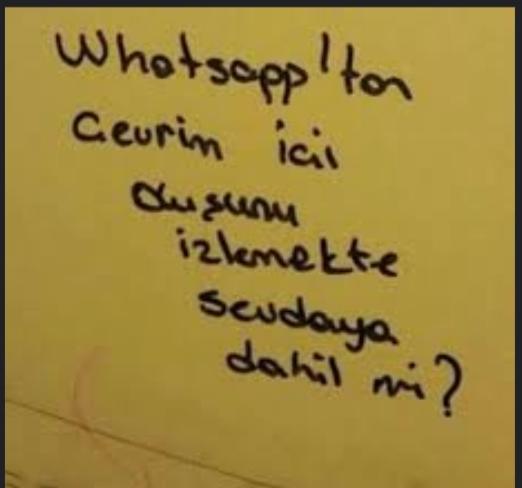 Whatsapp'tan
Çevrim içi
oluşunu
izlemekte
sevdaya
dahil mi?